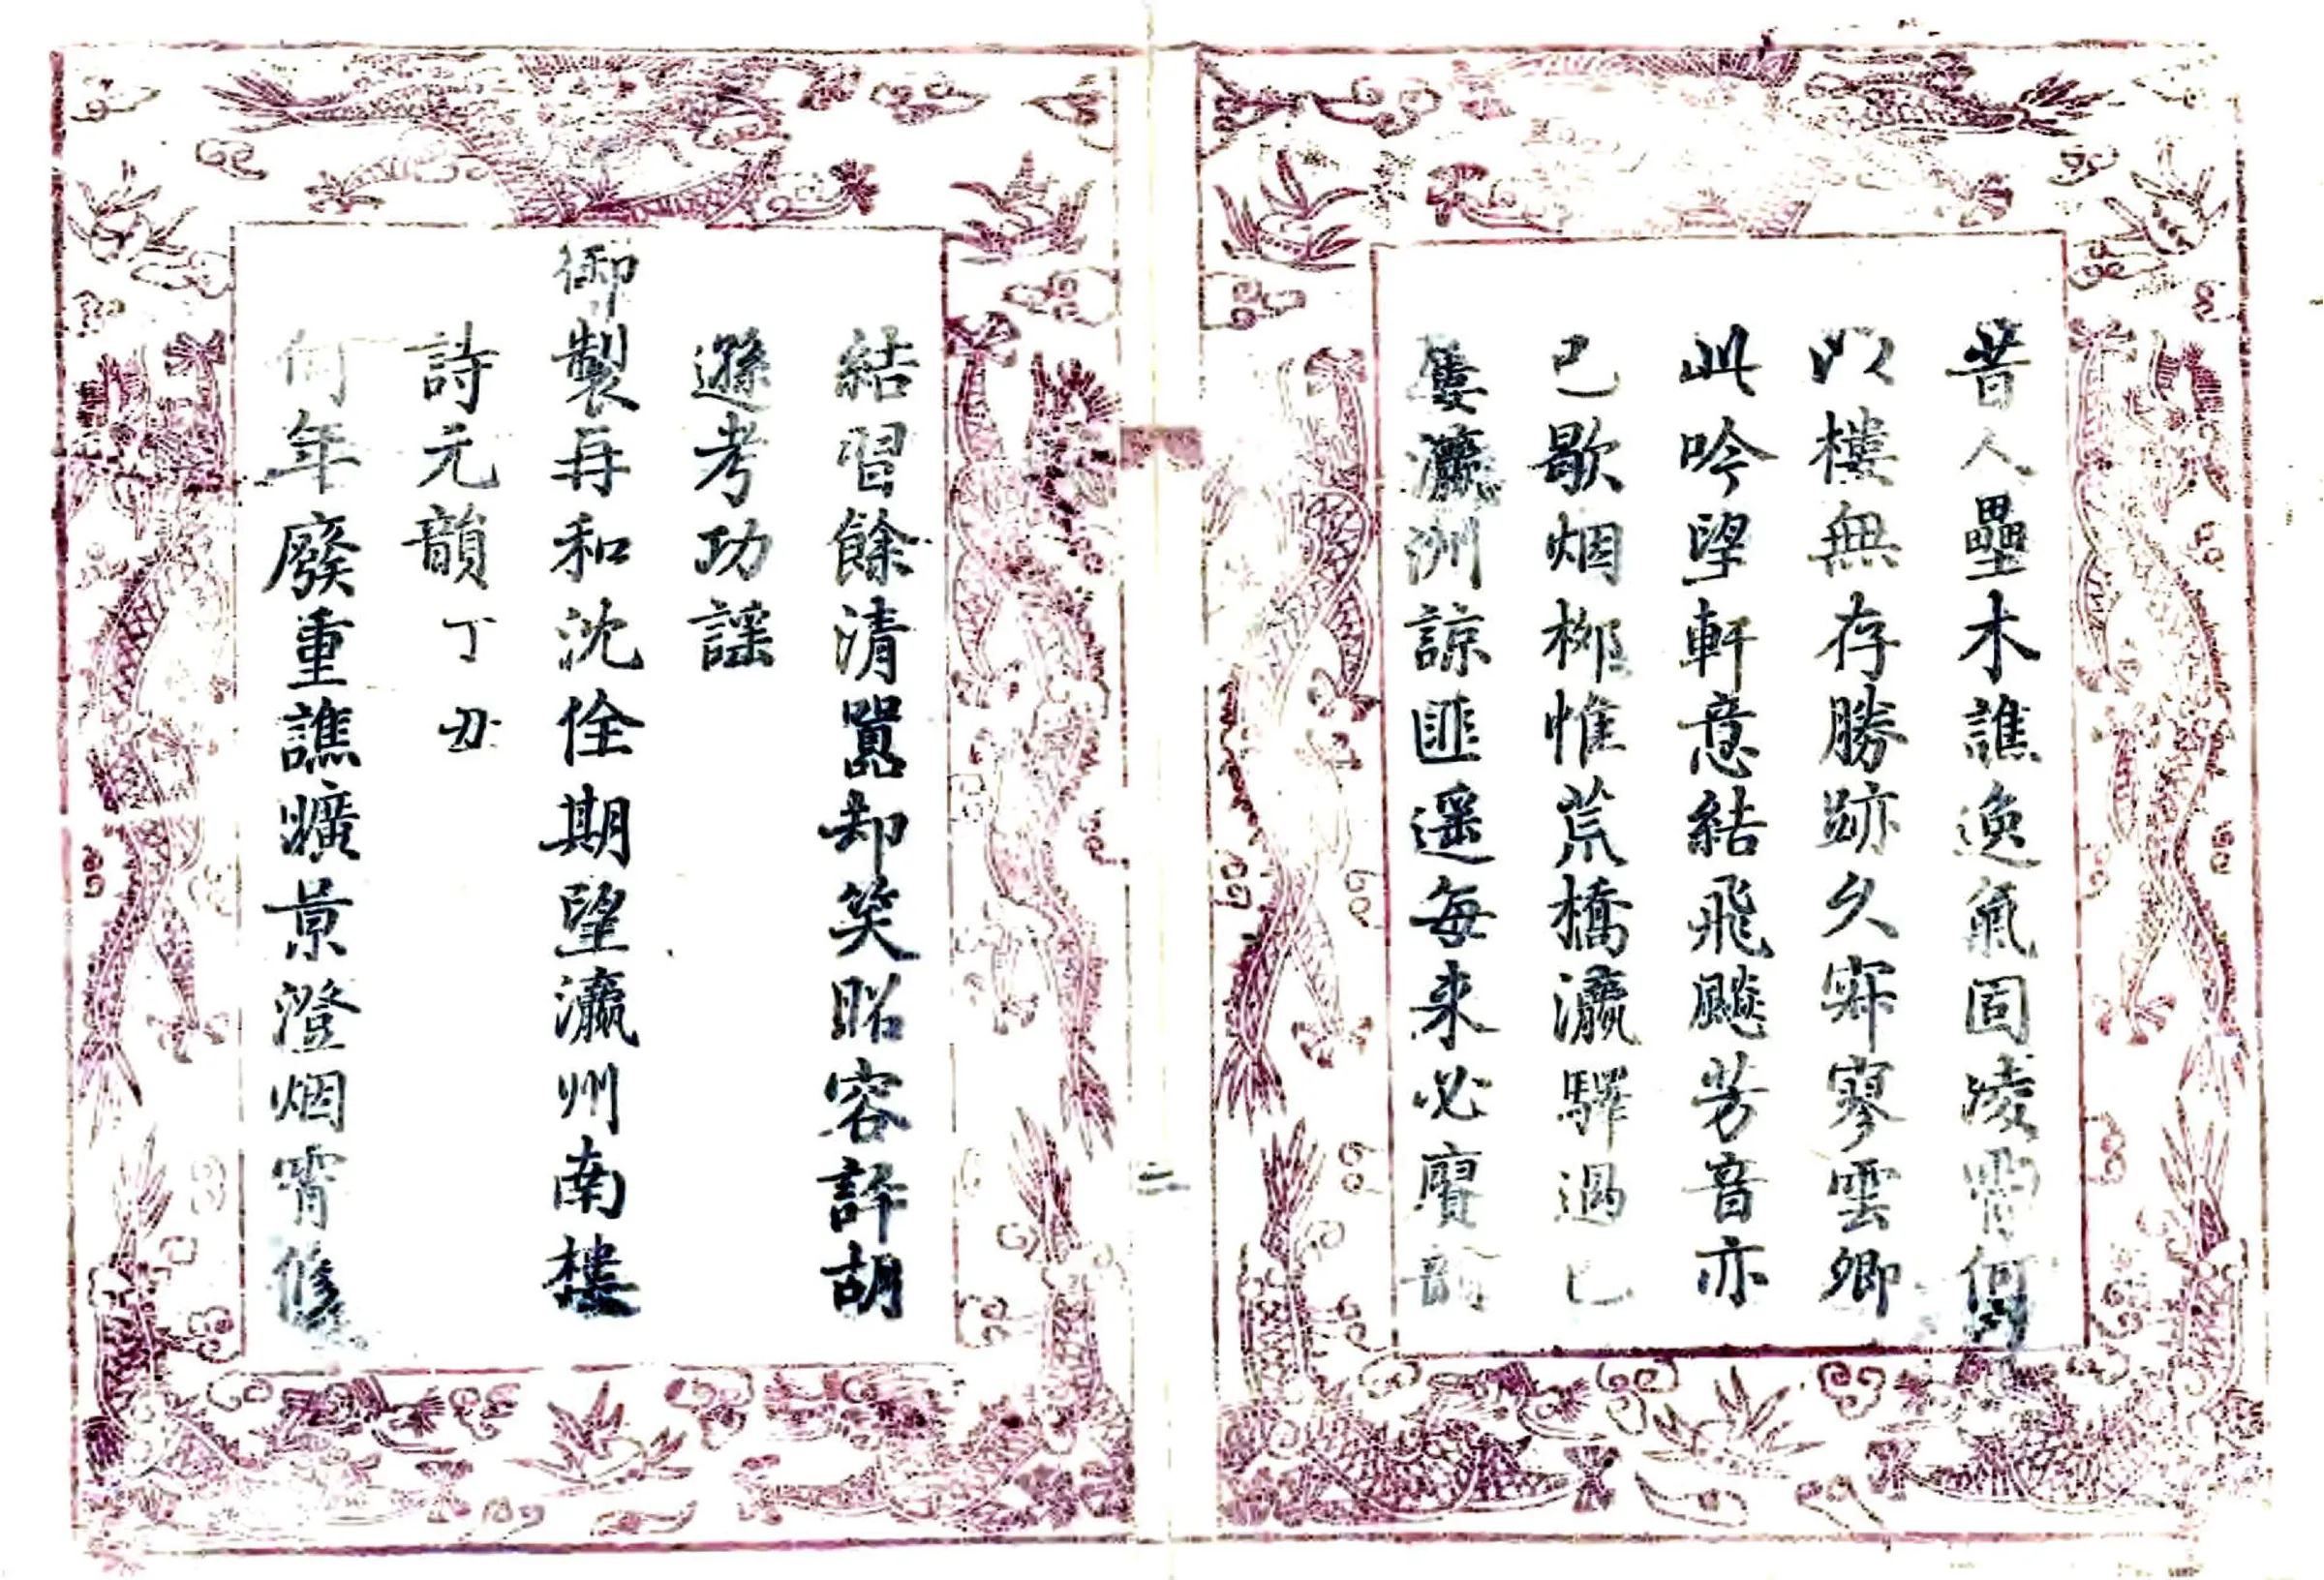 昔人壘木譙逸氣固凌霄何
以樓無存勝跡久寂寥雲卿
此吟望軒意結飛飈芳音亦
已歇烟柳惟荒橋瀛驛過已
屢瀛洲諒匪遥每來必賡韻
二
結習餘清囂却笑昭容評胡
遜考功謡
御製再和沈佺期望瀛州南樓
詩元韻丁丑
何年廢重譙曠景澄烟霄修